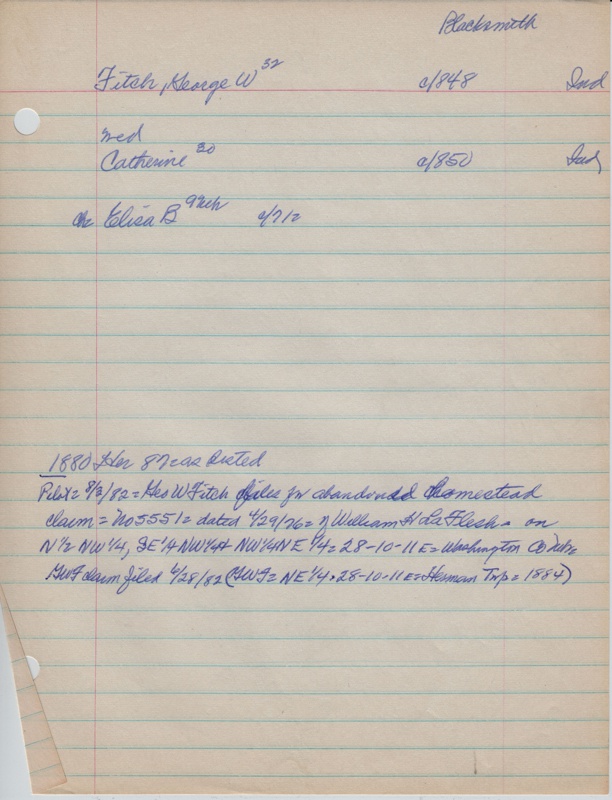 Blacksmith
Fitch, George W 32 c/848 Ind
med
Catherine 30 c/850 Ind
ch Elisa B 9 Neb c/71/2
1880 Her 87 as listed
Pilot = 8/3/82 = Geo W Fitch files for abandoned homestead
claim = No 5551 = dated 4/29/76 = of William H LaFlesh = on
N 1/2 NW 1/4, SE 1/4 NW 1/4 NW 1/4 NE 1/4 = 28-10-11E = Washington Co Nebr
GWF claim filed 6/28/82 (GWF = NE 1/4 • 28-10-11E = Herman Twp = 1884)